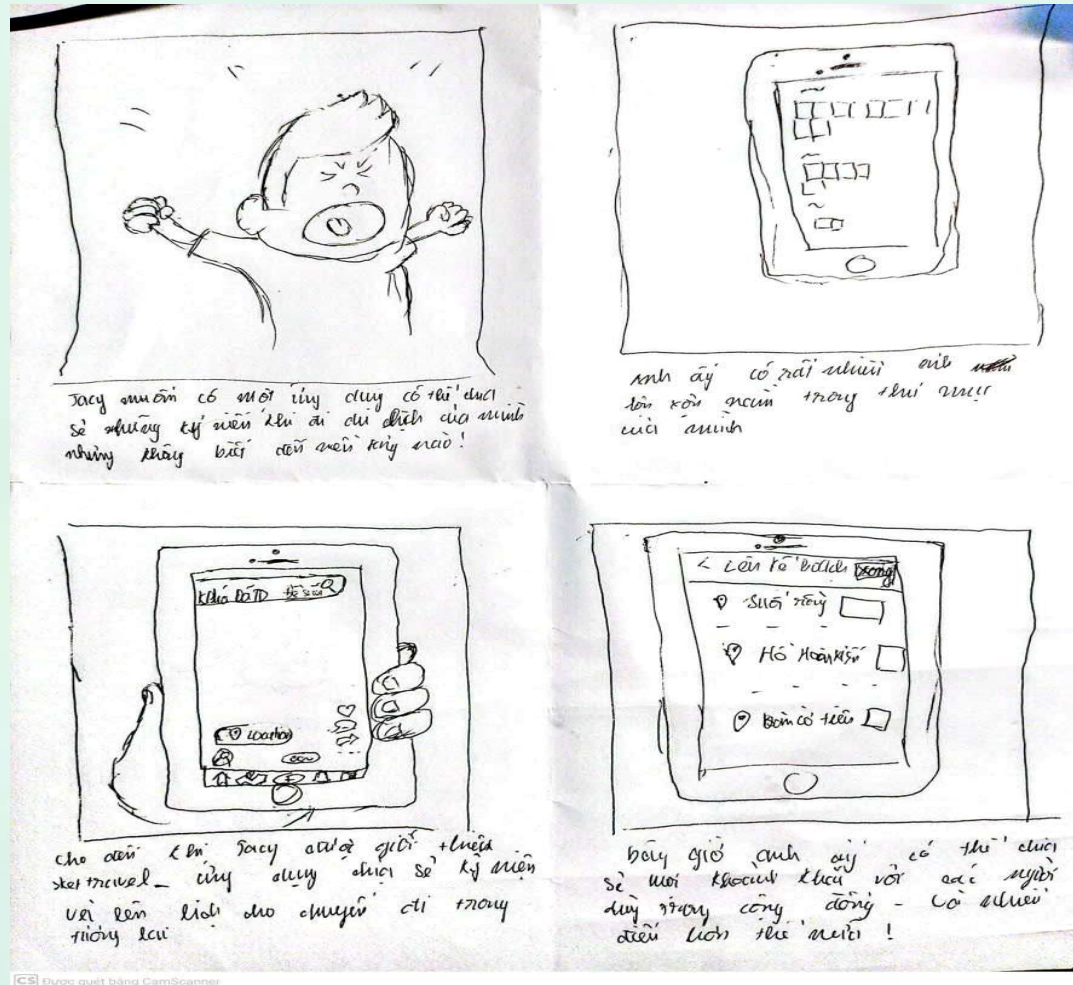 Jacy muốn có một ứng dụng có thể chia
sẻ những kỷ niệm khi đi du lịch của mình
nhưng không biết đến nền tảng nào!
Anh ấy có rất nhiều ảnh
lộn xộn nằm trong thư mục
của mình
Khám phá
Location
cho đến khi Jacy được giới thiệu
travel_ ứng dụng chia sẻ kỷ niệm
và lên lịch cho chuyến đi trong
tương lai
< Lên kế hoạch
Hồ Hoàn Kiếm
bây giờ anh ấy có thể chia
sẻ mọi khoảnh khắc với các người
dùng trong cộng đồng - và nhiều
điều hơn thế nữa!
CS Được quét bằng CamScanner